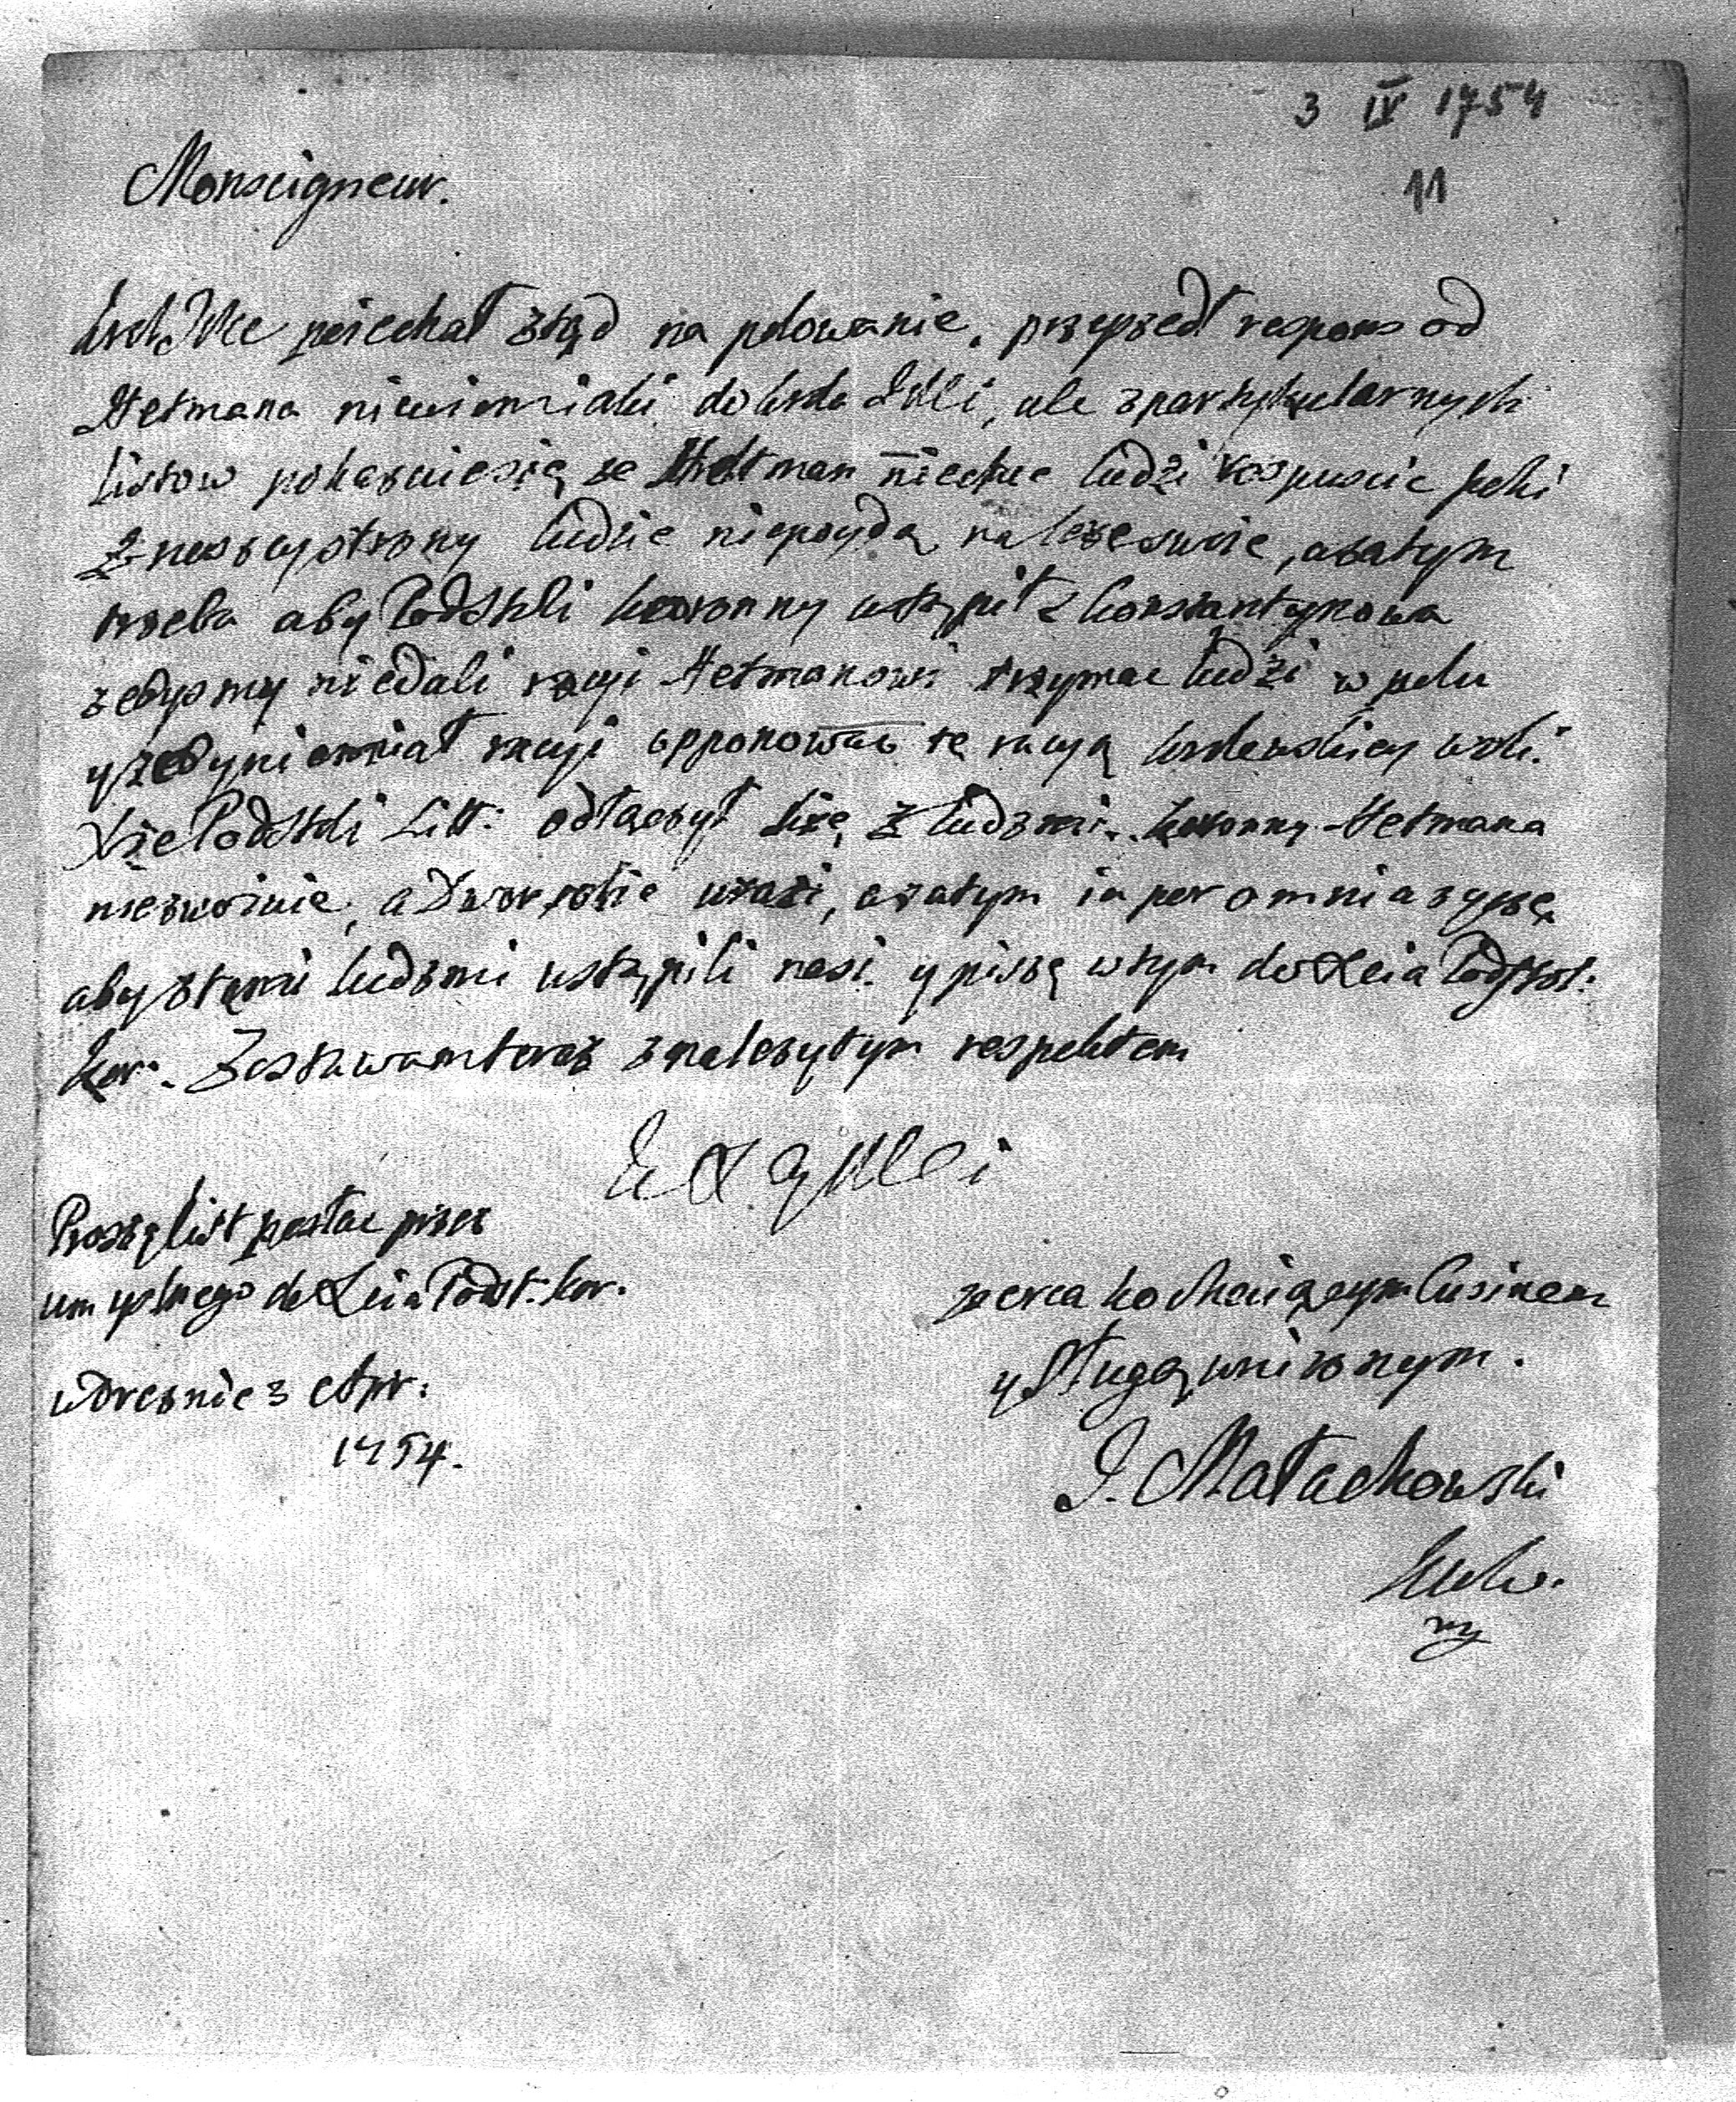 3 IV 1754
11
Monseigneur.
Krol Jmc poiechał ztąd na polowanie. przyszedł respons od
Hetmana niewiem iaki do Krola JMci, ale z partykularnych
listow pokazuie się ze Hetman niechce ludzi rospuscic poki
z naszey strony ludzie niepoydą na leze swoie, azatym
trzeba aby Podstoli koronny ustąpił z Konstantynowa
zebysmy niedali racyi Hetmanowi trzymac ludzi w polu
y zeby niemiał racyi opponowac się racyą krolewskiey woli.
Xże Podstoli Litt: odłączył się z ludzmi. Koronny Hetmana
niezwoiuie, a Dwor sobie urazi, azatym in per omnia zyczę
aby z temi ludzmi ustąpili nasi. y piszę w tym do Xcia Podstol:
Kor:. Zostawam teraz z nalezytym respektem
W X Q JMCi
Proszę list posłac przez
umyslnego do Xcia Podst: Kor.
w Dreznie 3 Apr:
1754.
z serca kochaiącym Cusinem
y Sługą unizonym.
J. Małachowski
KWK.
mp